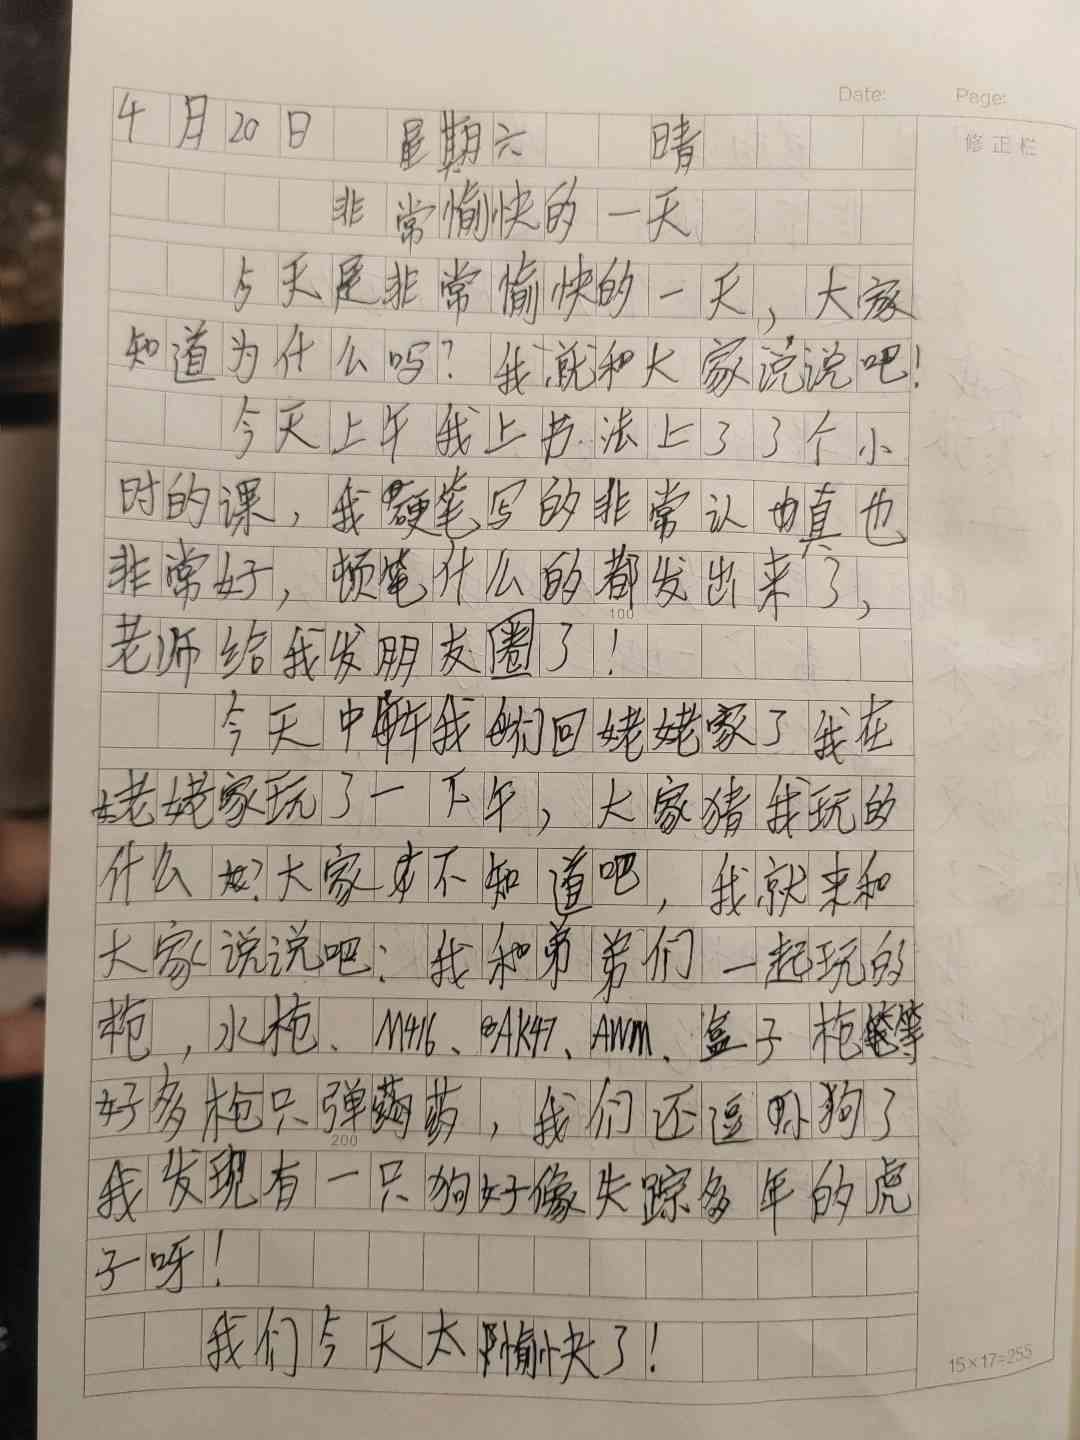 Date: Page:
修正栏
4月20日 星期六 晴
非常愉快的一天
今天是非常愉快的一天，大家
知道为什么吗？我就和大家说说吧！
今天上午我上书法上了3个小
时的课，我硬笔写的非常认真也
非常好，顿笔什么的都发出来了，
100
老师给我发朋友圈了！
今天中午我们回姥姥家了我在
姥姥家玩了一下午，大家猪我玩的
什么？大家才不知道吧，我就来和
大家说说吧：我和弟弟们一起玩的
枪，水枪、M416、AK47、AWM、盒子枪等
好多枪只弹药，我们还逗狗了
200
我发现有一只狗好像失踪多年的虎
子呀！
我们今天太愉快了！
15×17=255